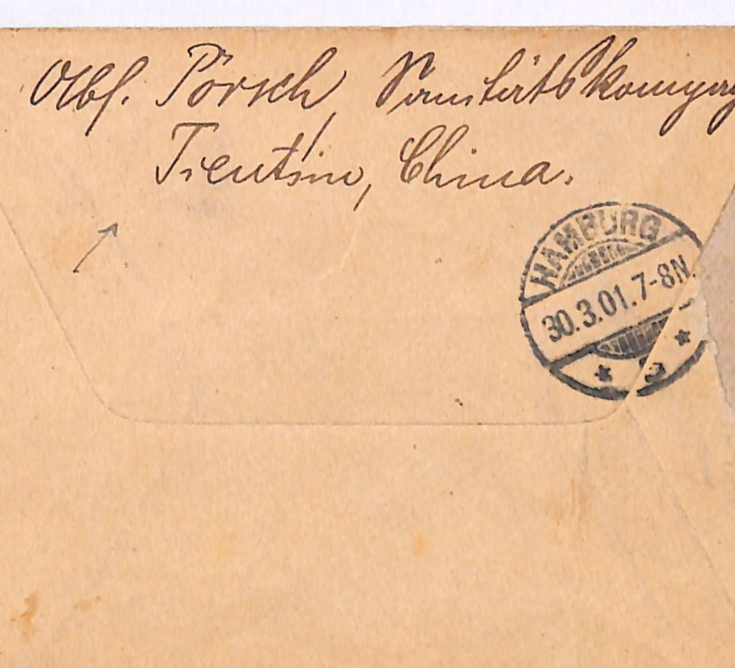 Pörsch, Sanitätskompag
Tientsin, China.
HAMBURG
30.3.01.7-8N.
* *